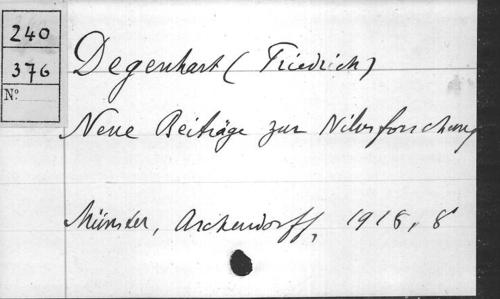 240
376
Nº
Degenhart (Friedrich)
Neue Beiträge zur Nilusforschung
Münster, Aschendorff, 1918, 8°